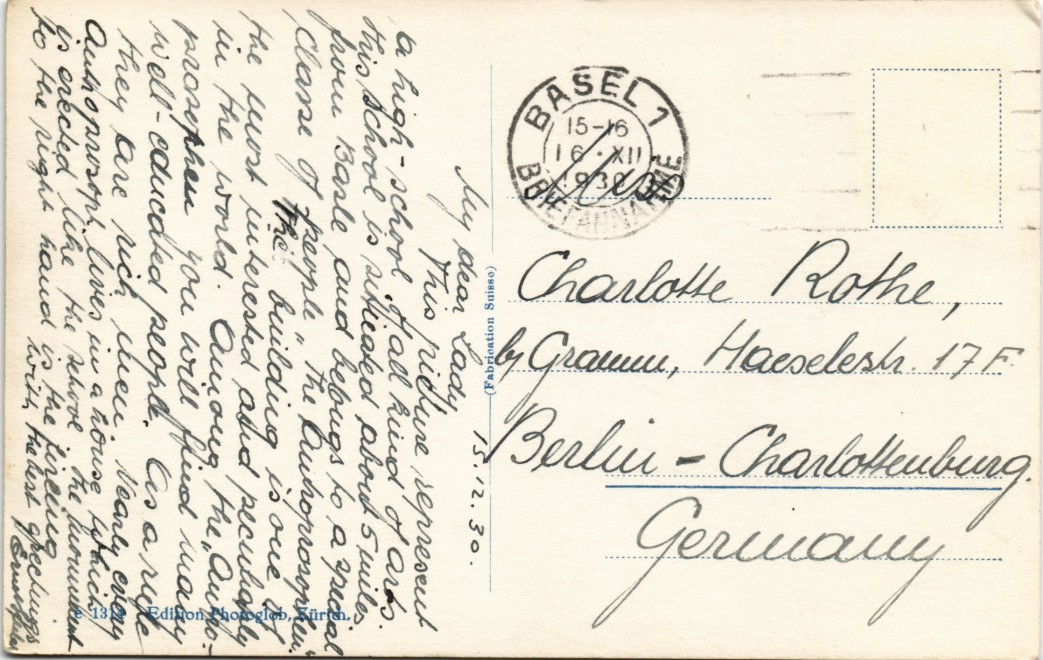 15.12.30.
My dear Lady
This picture represent
a high-school of all kind of arts.
This school is situated about 5 miles
from Basle and belongs to a special
Classe of "people" the Anthroprosophen."
The building is one of
the most interested and peculiarly
in the world. Among the "Anthro-
prosophen you will find many
well-educated people. As a rule
they are rich men. Nearly every
Anthoprosoph lives in a house which
is erected like the school. The
to the right hand is the
with the best greetings
BASEL 1
15-16
16·XII
1930
BRIEFANNAHME
Charlotte Rothe,
by Gramm, Haeselestr. 17 F.
Berlin - Charlottenburg.
Germany
(Fabrication Suisse)
e 1314 Edition Photoglob, Zürich.